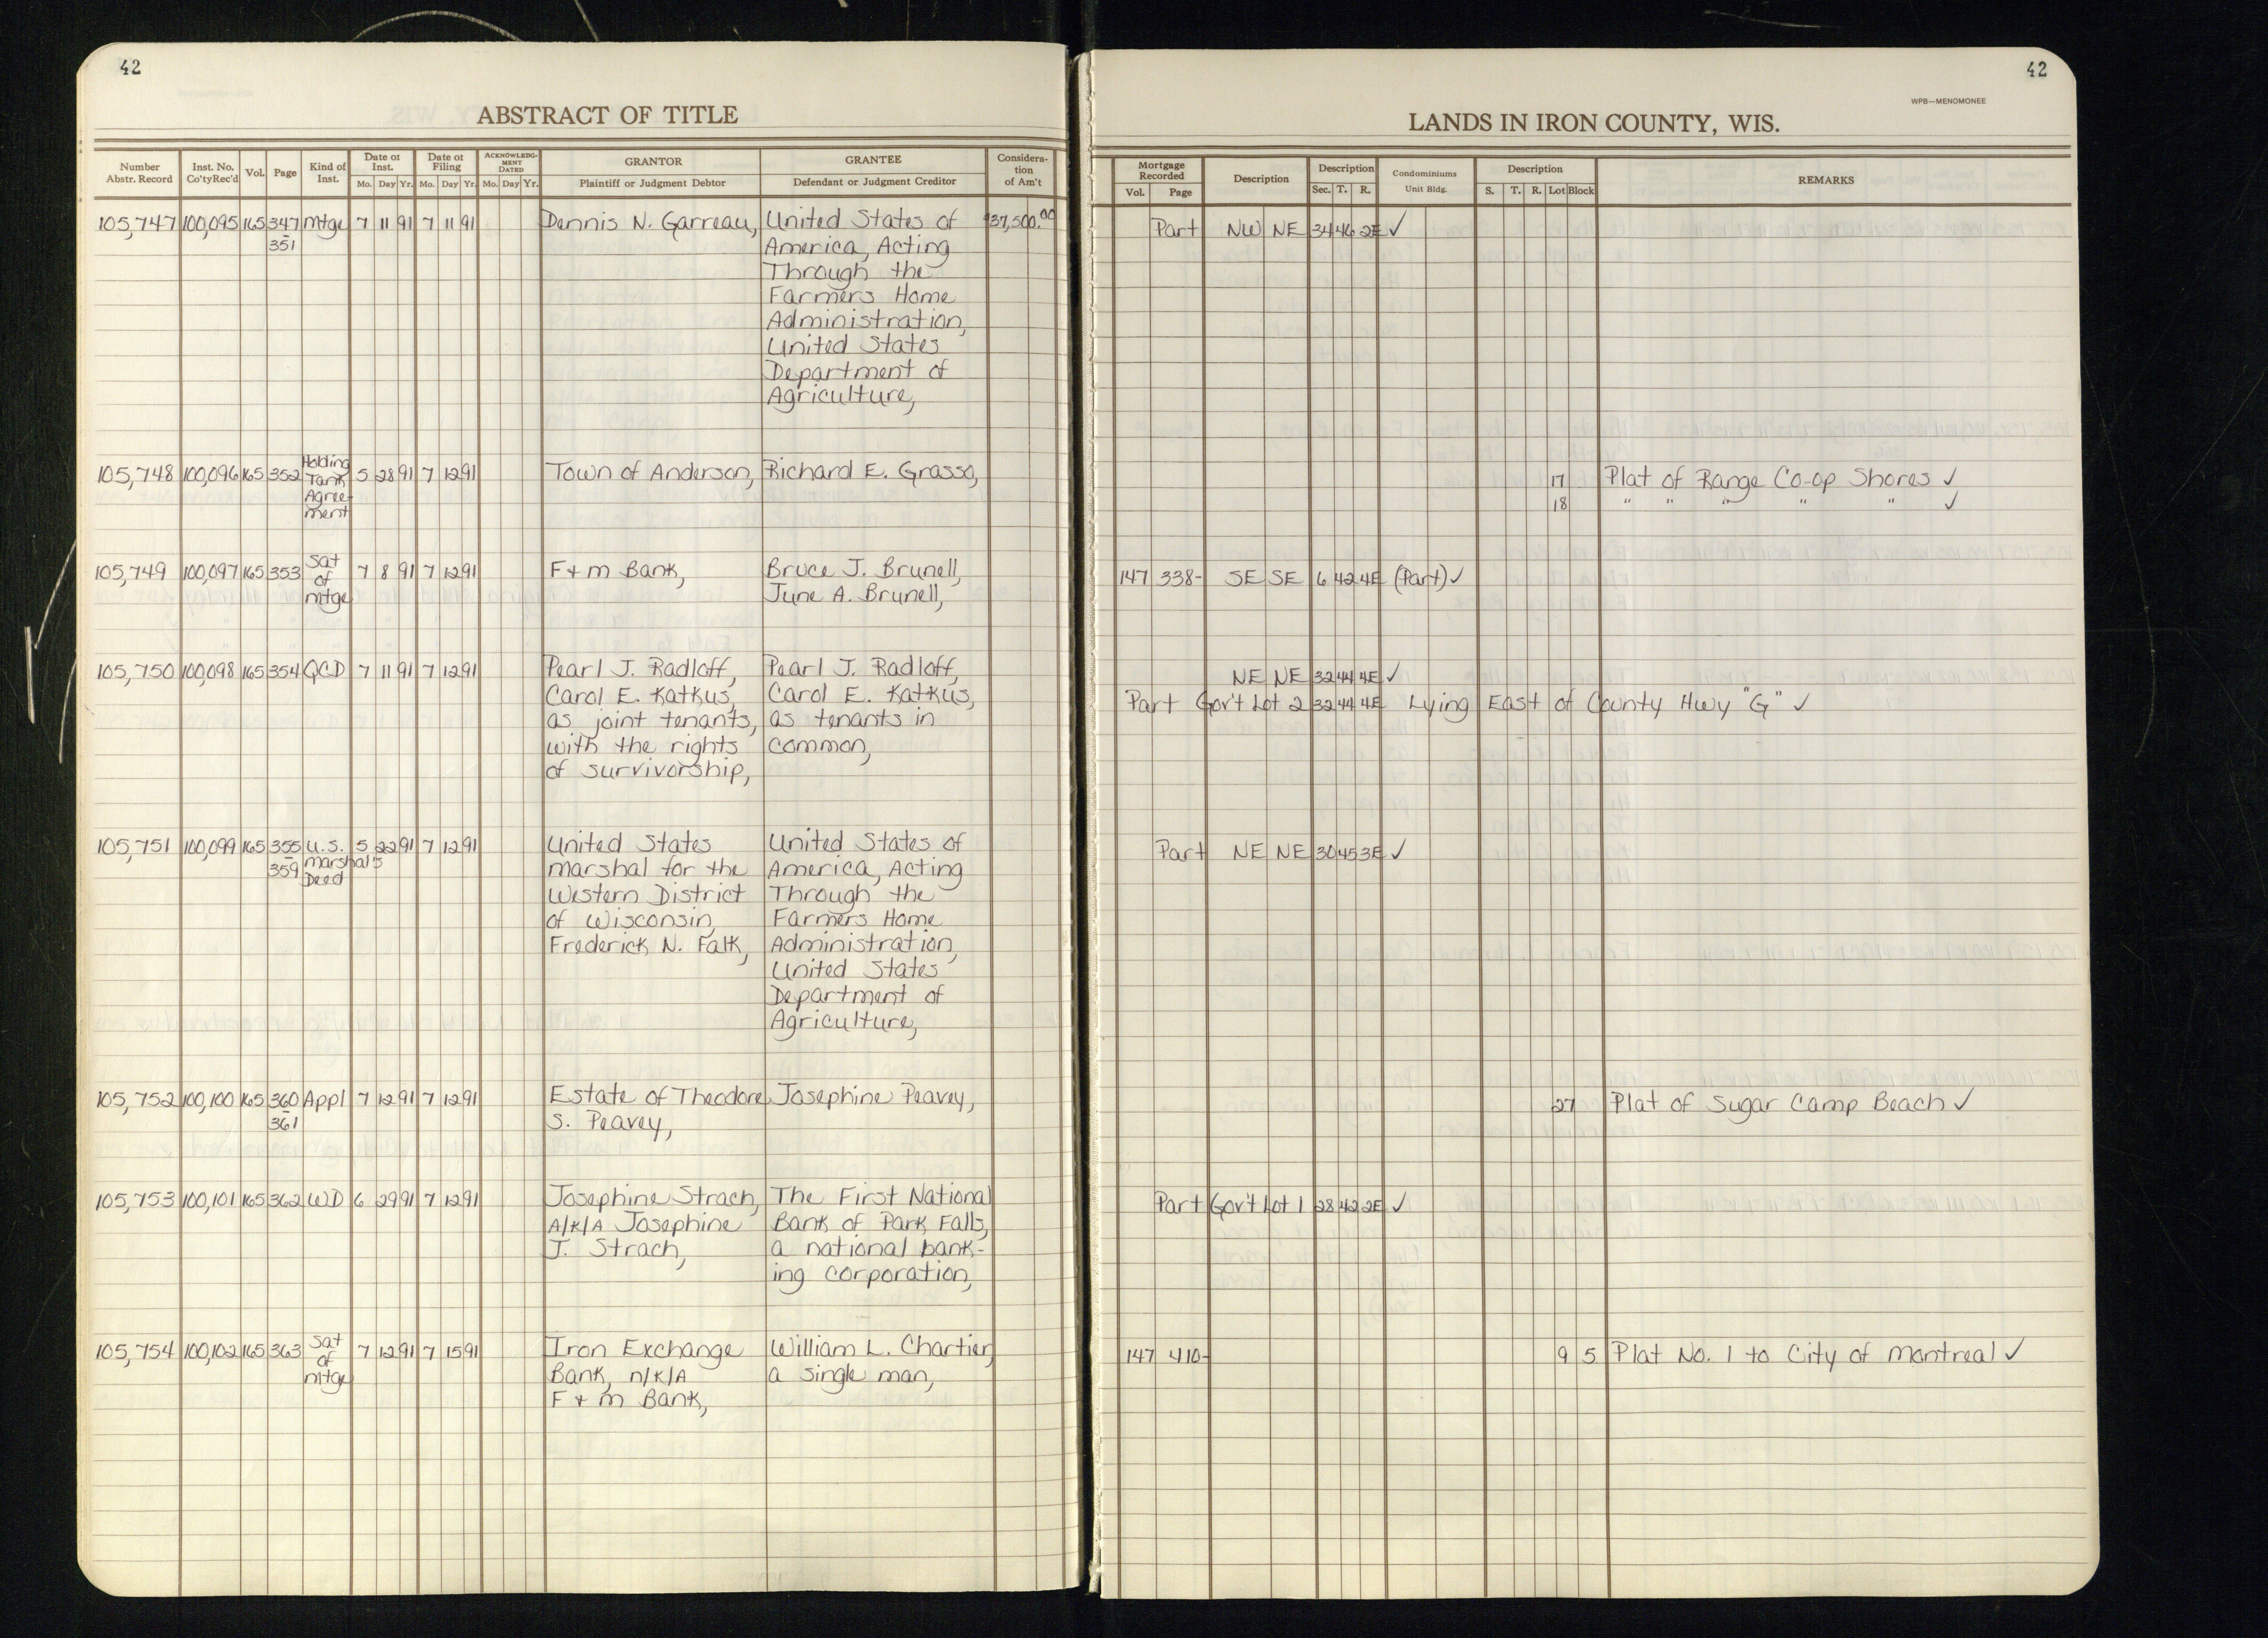 42
ABSTRACT OF TITLE
Number Abstr. Record Inst. No. Co'ty Rec'd Vol. Page Kind of Inst. Date of Inst. Mo. Day Yr. Date of Filing Mo. Day Yr. ACKNOWLEDGMENT DATED Mo. Day Yr. GRANTOR Plaintiff or Judgment Debtor GRANTEE Defendant or Judgment Creditor Consideration of Am't
105,747 100,095 165 347 Mtge 7 11 91 7 11 91 Dennis N. Garreau, United States of $37,500.00
351 America, Acting
Through the
Farmers Home
Administration,
United States
Department of
Agriculture,
105,748 100,096 165 352 Holding 5 28 91 7 12 91 Town of Anderson, Richard E. Grasso,
Tank
Agree-
ment
105,749 100,097 165 353 Sat 7 8 91 7 12 91 F + M Bank, Bruce J. Brunell,
of June A. Brunell,
mtge
105,750 100,098 165 354 QCD 7 11 91 7 12 91 Pearl J. Radloff, Pearl J. Radloff,
Carol E. Katkus, Carol E. Katkus,
as joint tenants, as tenants in
with the rights common,
of survivorship,
105,751 100,099 165 355 U.S. 5 22 91 7 12 91 United States United States of
359 Marshal's Marshal for the America, Acting
Deed Western District Through the
of Wisconsin, Farmers Home
Frederick N. Falk, Administration,
United States
Department of
Agriculture,
105,752 100,100 165 360 Appl 7 12 91 7 12 91 Estate of Theodore Josephine Peavey,
361 S. Peavey,
105,753 100,101 165 362 WD 6 29 91 7 12 91 Josephine Strach, The First National
A/K/A Josephine Bank of Park Falls,
J. Strach, a national bank-
ing corporation,
105,754 100,102 165 363 Sat 7 12 91 7 15 91 Iron Exchange William L. Chartier,
of Bank, n/k/a a single man,
mtge F + M Bank,
42
WPB—MENOMONEE
LANDS IN IRON COUNTY, WIS.
Mortgage Recorded Vol. Page Description Description Sec. T. R. Condominiums Unit Bldg. Description S. T. R. Lot Block REMARKS
Part NW NE 34 46 2E ✓
17 Plat of Range Co-op Shores ✓
18 " " " " " ✓
147 338- SE SE 6 42 4E (Part) ✓
NE NE 32 44 4E ✓
Part Gov't Lot 2 32 44 4E Lying East of County Hwy "G" ✓
Part NE NE 30 45 3E ✓
27 Plat of Sugar Camp Beach ✓
Part Gov't Lot 1 28 42 2E ✓
147 410- 9 5 Plat No. 1 to City of Montreal ✓